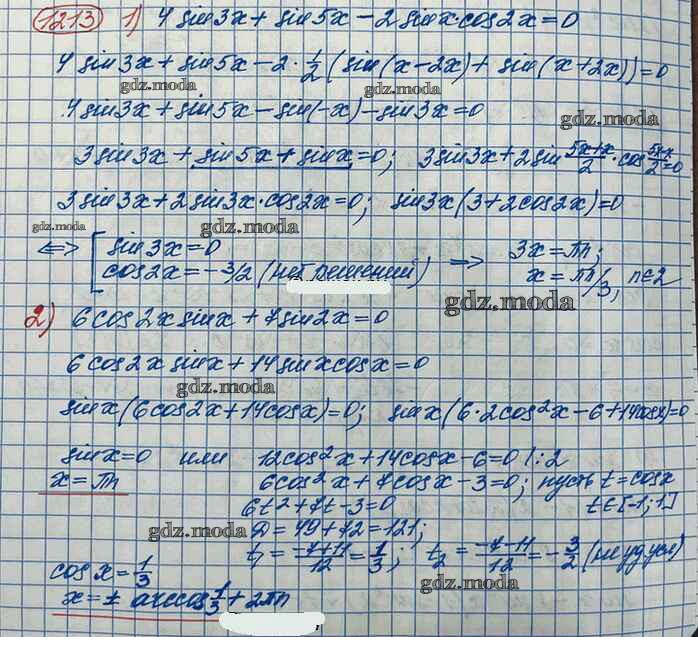 1213 1) 4 sin3x + sin5x - 2 sinx·cos2x = 0
4 sin3x + sin5x - 2·1/2 (sin(x-2x) + sin(x+2x)) = 0
gdz.moda gdz.moda
4 sin3x + sin5x - sin(-x) - sin3x = 0
gdz.moda
3 sin3x + sin5x + sinx = 0; 3 sin3x + 2 sin (5x+x)/2 · cos (5x-x)/2 = 0
3 sin3x + 2 sin3x·cos2x = 0; sin3x(3 + 2cos2x) = 0
gdz.moda gdz.moda
⟺ [ sin3x = 0
cos2x = -3/2 (нет решений) ⟹ 3x = πn;
x = πn/3, n∈Z
gdz.moda
2) 6 cos2x sinx + 7 sin2x = 0
6 cos2x sinx + 14 sinx cosx = 0
gdz.moda
sinx(6cos2x + 14cosx) = 0; sinx(6·2cos²x - 6 + 14cosx) = 0
sinx = 0 или 12cos²x + 14cosx - 6 = 0 /:2
x = πn 6cos²x + 7cosx - 3 = 0; пусть t = cosx
6t² + 7t - 3 = 0 t∈[-1;1]
gdz.moda D = 49 + 72 = 121;
t₁ = (-7+11)/12 = 1/3; t₂ = (-7-11)/12 = -3/2 (не уд усл)
cosx = 1/3 gdz.moda
x = ± arccos 1/3 + 2πn